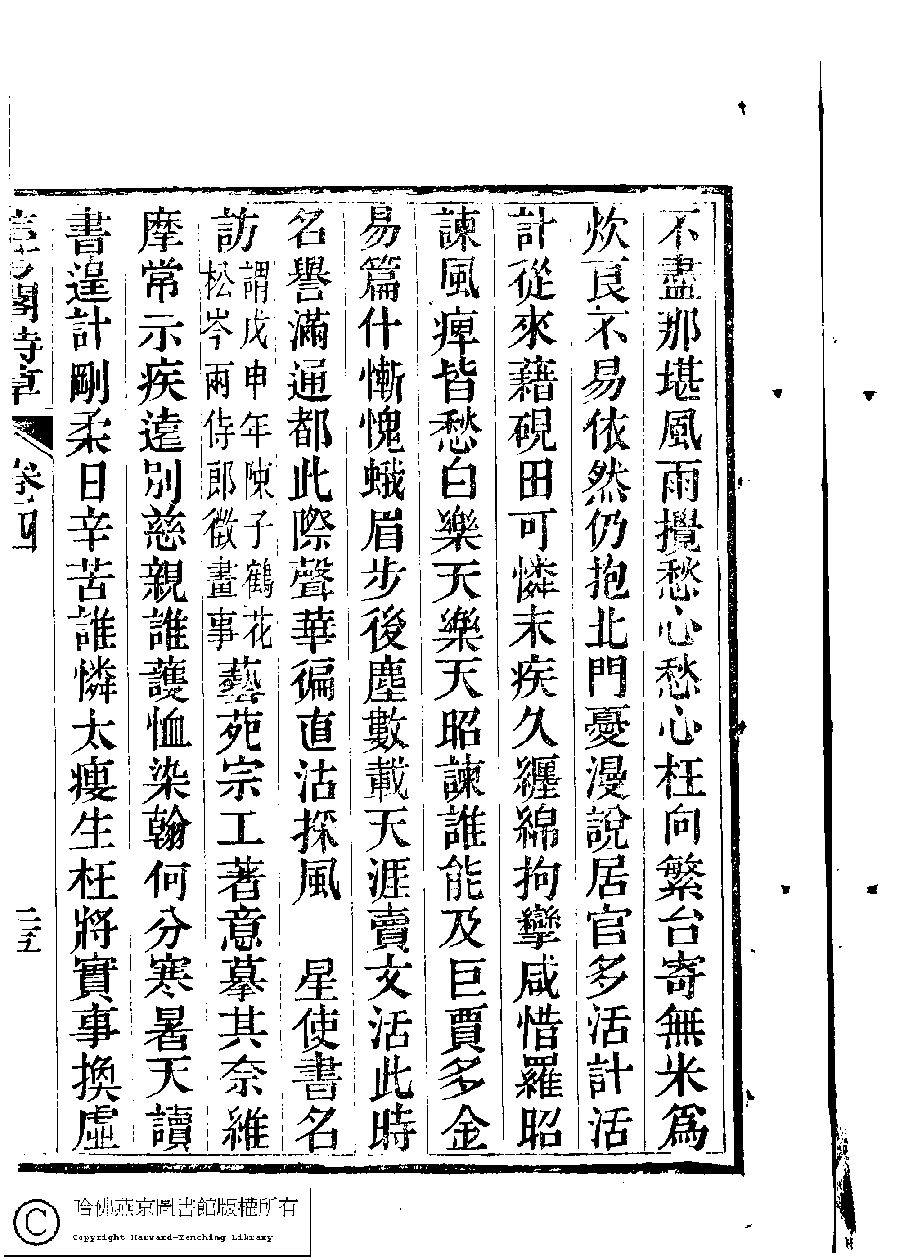 不盡那堪風雨攪愁心愁心枉向繁台寄無米爲
炊良不易依然仍抱北門憂漫說居官多活計活
計從來藉硯田可憐末疾久纒綿拘攣咸惜羅昭
諫風痺皆愁白樂天樂天昭諫誰能及巨賈多金
易篇什慚愧蛾眉步後塵數載天涯賣文活此時
名譽滿通都此際聲華徧直沽採風　星使書名
訪謂戊申年陳子鶴花松岑兩侍郎徵畫事藝苑宗工著意摹其奈維
摩常示疾遠別慈親誰護恤染翰何分寒暑天讀
書遑計剛柔日辛苦誰憐太瘦生枉將實事換虛
閣詩草
卷四
二五
哈佛燕京圖書館版權所有
Copyright Harvard-Yenching Library